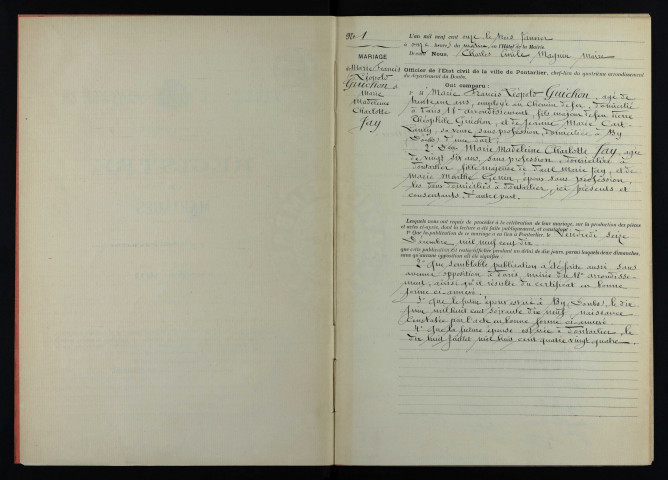 N° 1
MARIAGE
Marie Francis
Léopold
Guichon
Marie
Madeleine
Charlotte
Jay
L'an mil neuf cent onze, le trois janvier
à onze heures du matin, en l'Hôtel de la Mairie.
Devant Nous, Charles Emile Magnin, Maire
Officier de l'Etat civil de la ville de Pontarlier, chef-lieu du quatrième arrondissement
du département du Doubs.
Ont comparu :
1° Mr Marie Francis Léopold Guichon, âgé de
trente un ans, employé au chemin de fer, domicilié
à Paris 18e arrondissement, fils majeur de feu Pierre
Théophile Guichon, et de Jeanne Marie
sa veuve sans profession, domiciliée à By
(Doubs) d'une part
2° Delle Marie Madeleine Charlotte Jay, âgée
de vingt six ans, sans profession, domiciliée à
Pontarlier fille majeure de Paul Marie Jay, et de
Marie Marthe Genin, épouse sans profession,
tous deux domiciliés à Pontarlier, ici présents et
consentants d'autre part.
Lesquels nous ont requis de procéder à la célébration de leur mariage, sur la production des pièces
et actes ci-après, dont la lecture a été faite publiquement, et constatant :
1° Que la publication de ce mariage a eu lieu à Pontarlier, le Vendredi seize
Décembre mil neuf cent dix
que cette publication est restée affichée pendant un délai de dix jours, parmi lesquels deux dimanches,
sans qu'aucune opposition ait été signifiée :
2° Que semblable publication a été faite aussi sans
aucune opposition à Paris, mairie du 18e arrondisse-
ment, ainsi qu'il résulte du certificat en bonne
forme ci-annexé.
3° Que le futur époux est né à By, (Doubs), le dix
juin mil huit cent soixante dix neuf, naissance
constatée par l'acte en bonne forme ci-annexé
4° Que la future épouse est née à Pontarlier, le
dix huit juillet mil huit cent quatre vingt quatre.